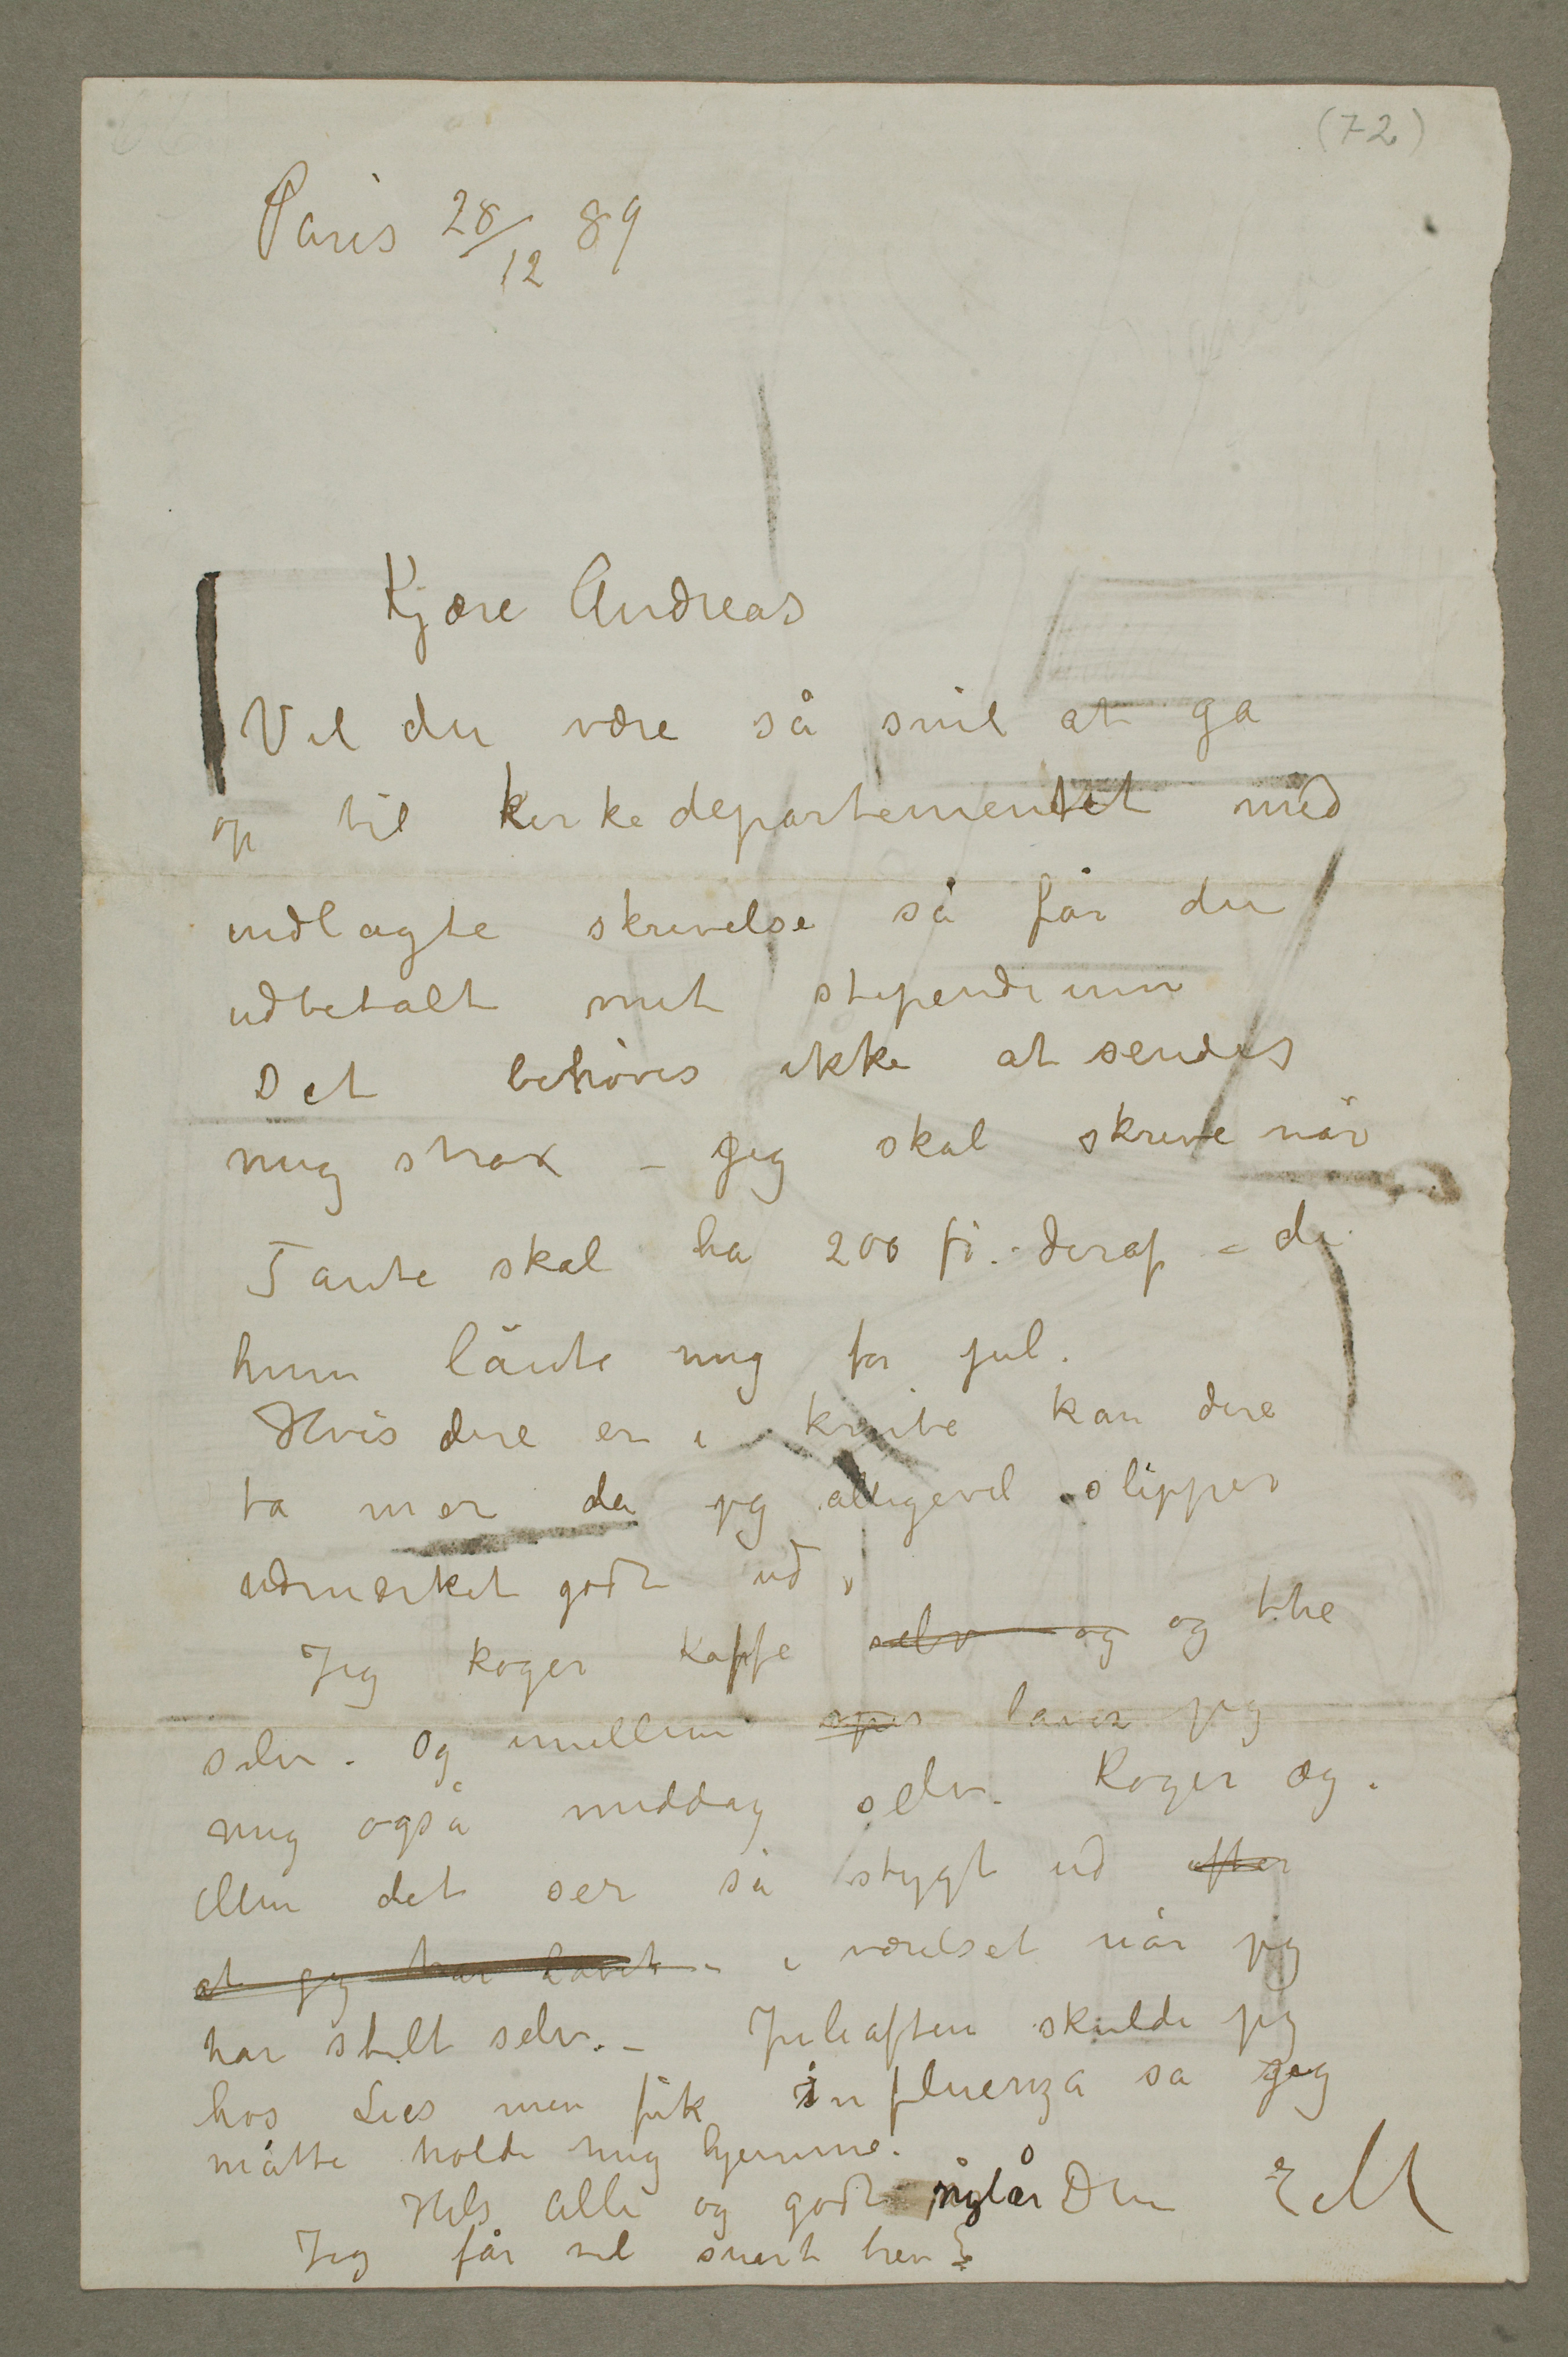 (72)
Paris 28/12 89
Kjære Andreas
Vil du være så snil at ga
op til kirkedepartementet med
indlagte skrivelse så får du
udbetalt mit stipendium
Det behøves ikke at sendes
mig strax – jeg skal skrive når
Tante skal ha 200 fr. deraf – de
hun lånte mig for jul.
Hvis dere er i knibe kan dere
ta mer da jeg alligevel slipper
udmærket godt ud.
Jeg koger kaffe selv og og the
selv. Og imellem spis laver jeg
mig også middag selv. Koger æg.
Men det ser så stygt ud efter
at jeg har lavet – i værelset når jeg
har stelt selv. – Juleaften skulde jeg
hos Lies men fik influenza sa jeg
måtte holde mig hjemme.
Hils alle og godt nytår Din EM
Jeg får vel snart brev?